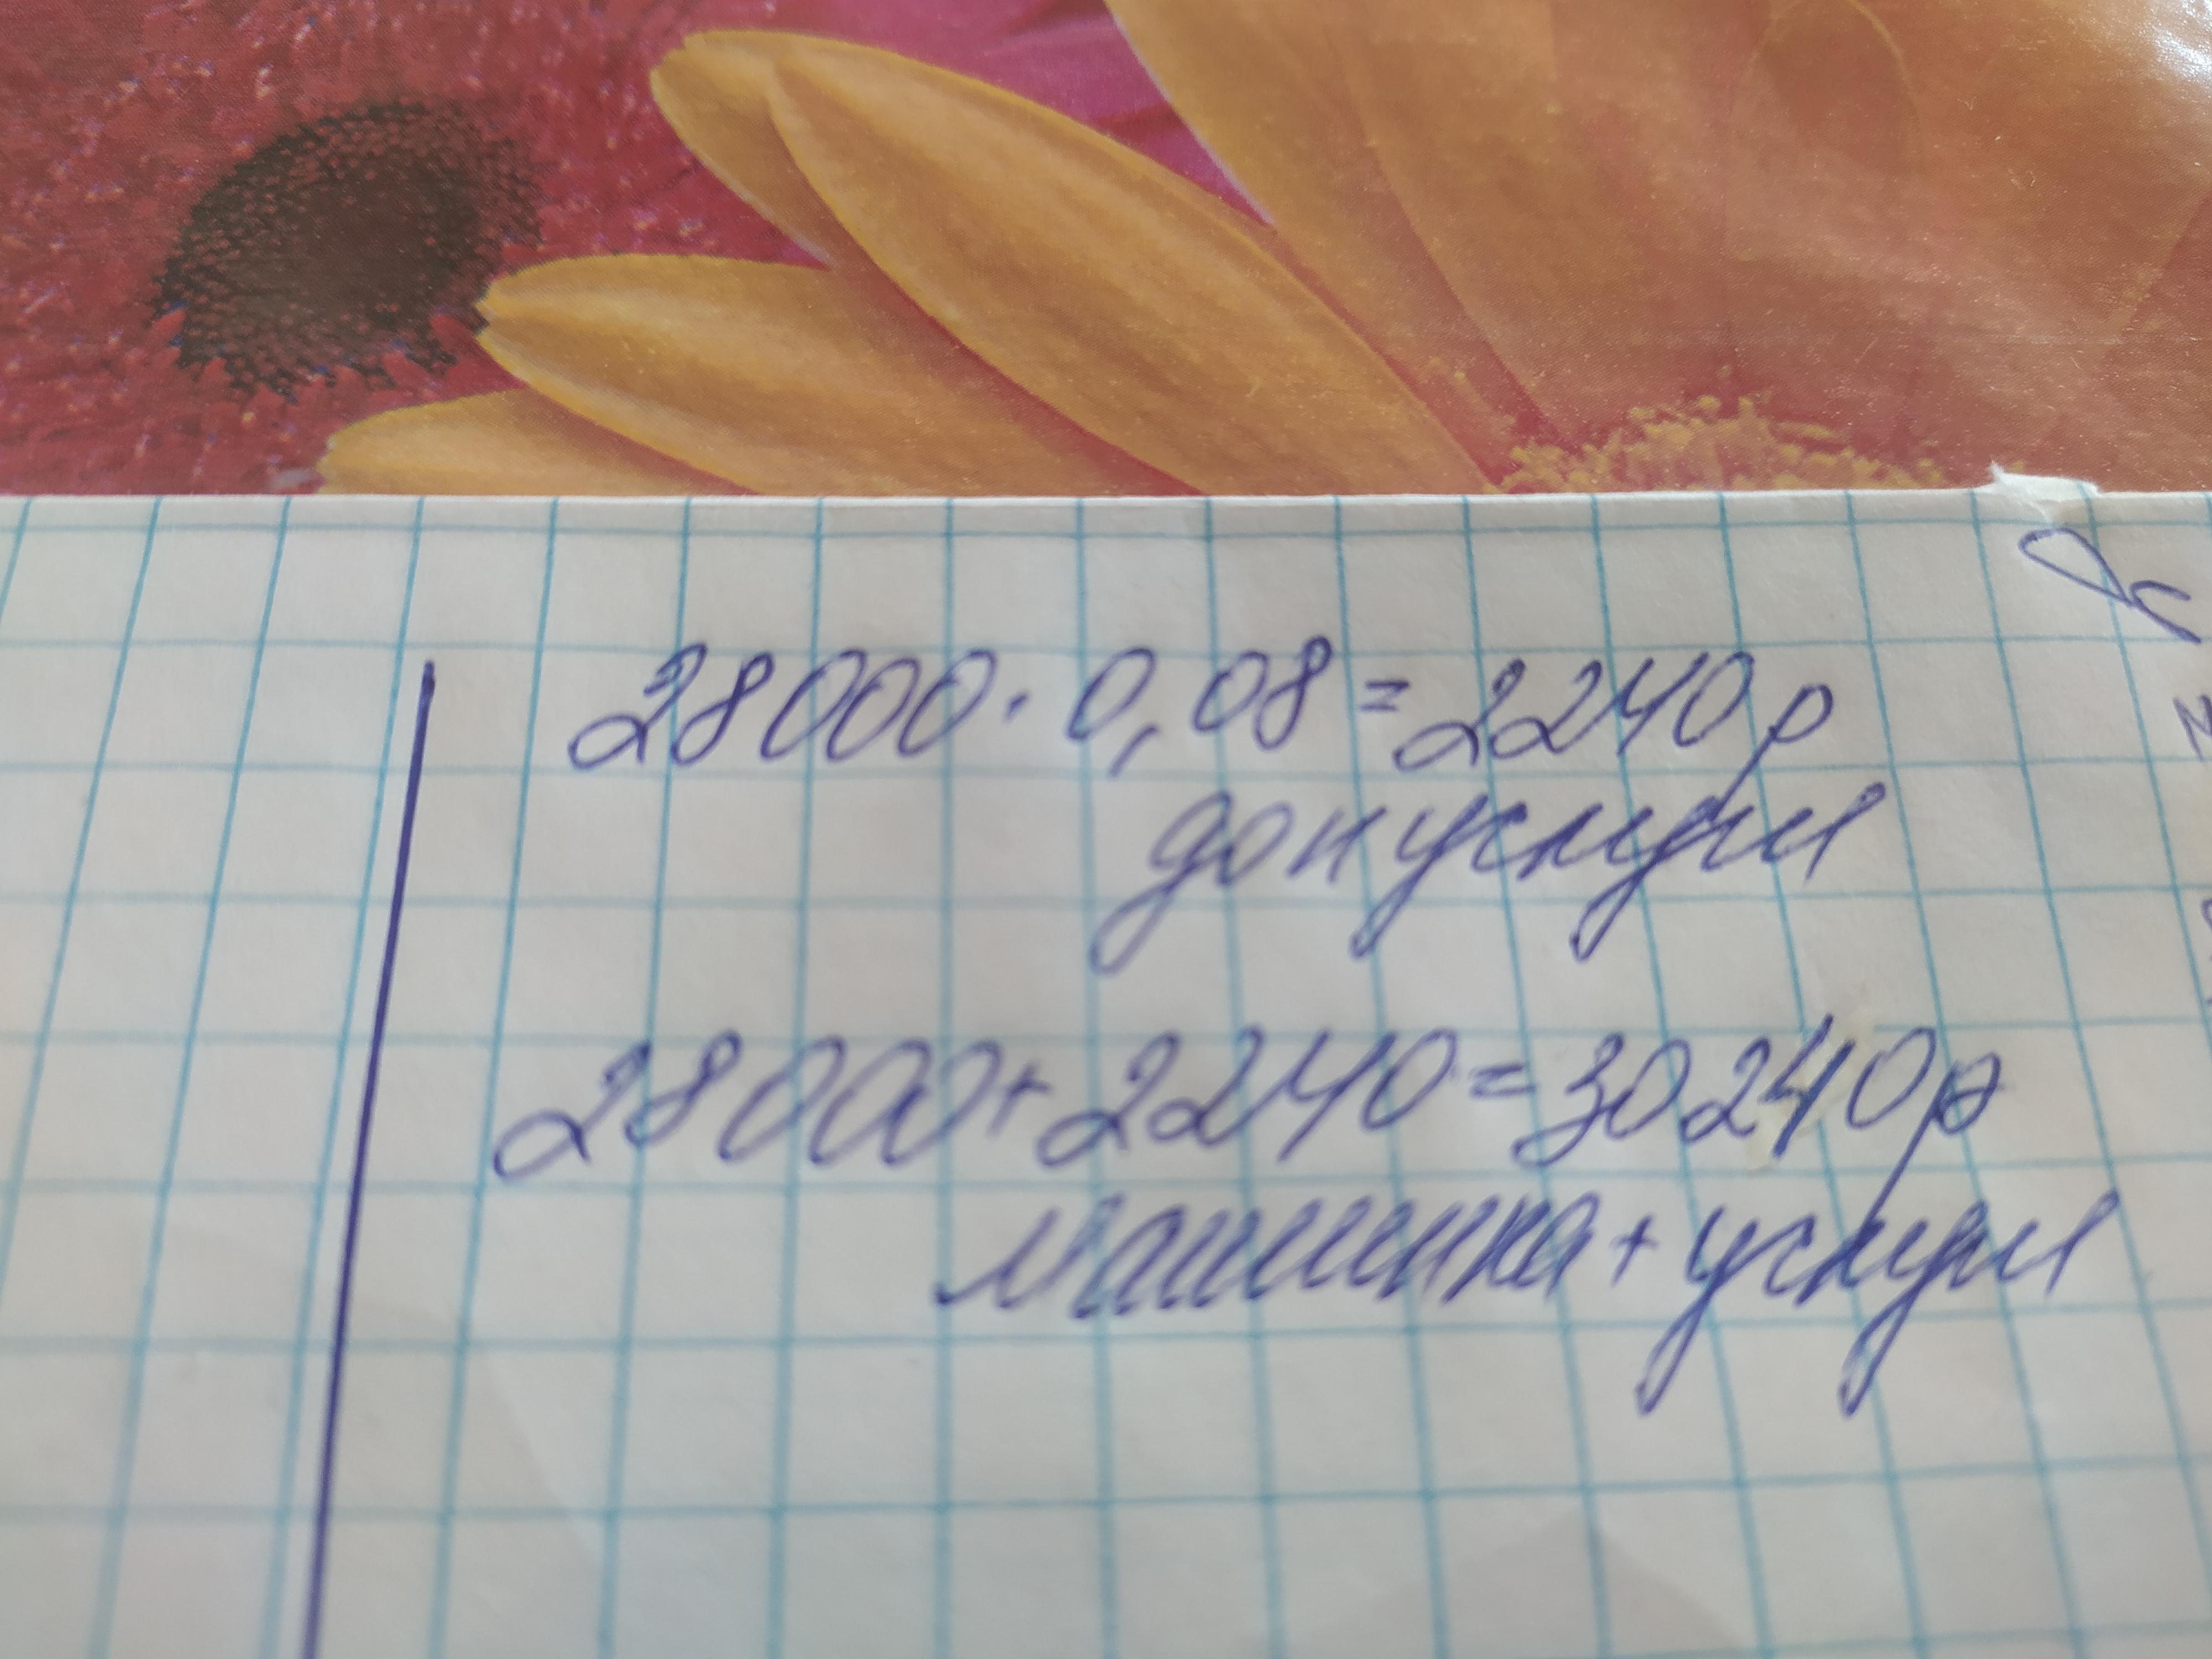 28000 · 0,08 = 2240р
доп услуги
28000 + 2240 = 30240р
машинка + услуги